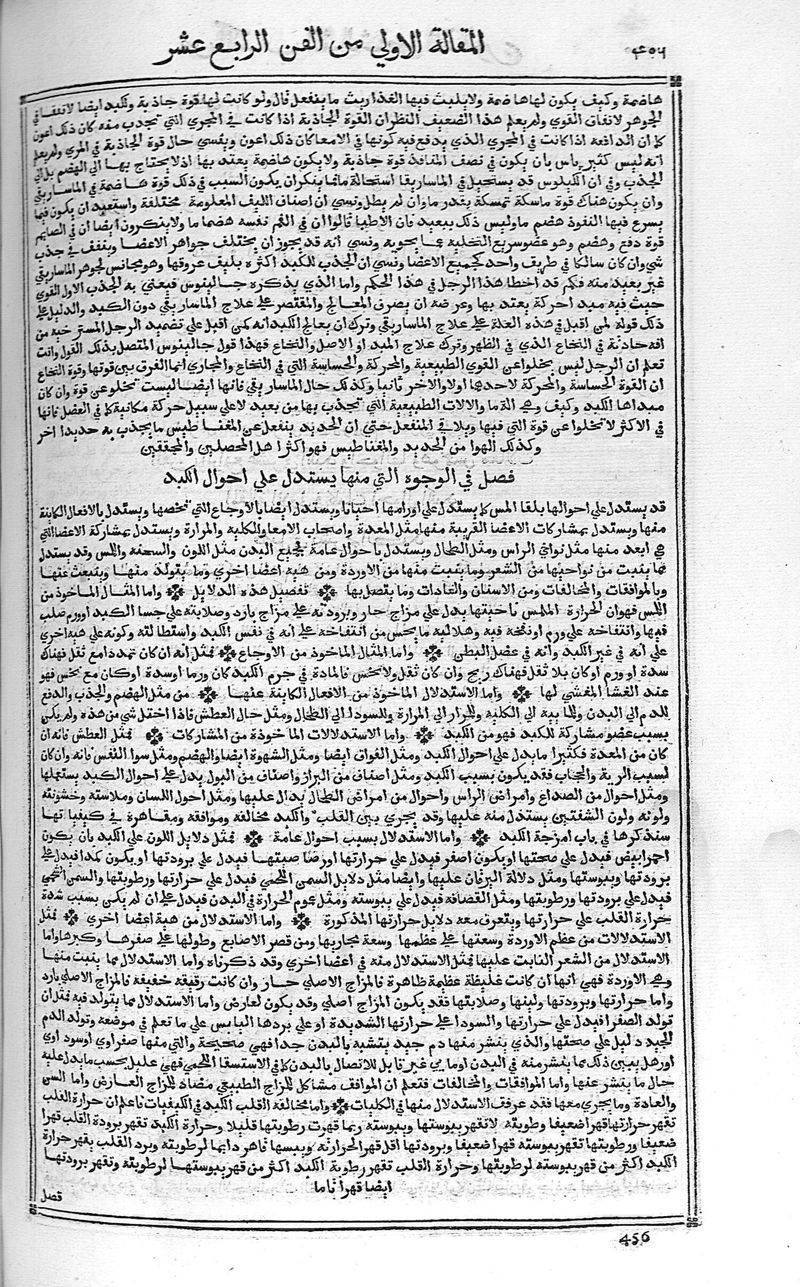 ٤٥٦ المقالة الاولي من الفن الرابع عشر
هاضمة وكيف يكون لها هاضمة ولا يلبث فيها الغذا ريث ما ينفعل قال ولو كانت لها قوة جاذبة وللكبد ايضا لاتفقا في
الجوهر لاتفاق القوي ولم يعلم هذا الضعيف النظر ان القوة الجاذبة اذا كانت في المجري التي تجذب منه كان ذلك اعون
كما ان الدافعة اذا كانت في المجري الذي يدفع فيه كونها في الامعا كان ذلك اعون وينسي حال قوة الجاذبة في المري ولم يعلم
انه ليس كثير باس بان يكون في نصف المنافذ قوة جاذبة ولا يكون هاضمة يعتد بها اذا لا يحتاج بها الي الهضم بل الي
الجذب ونسي ان الكيلوس قد يستحيل في الماساريقا استحالة ما فما ينكر ان يكون السبب في ذلك قوة هاضمة في الماساريقي
وان يكون هناك قوة ماسكة تمسكه بقدر ما وان لم يطل ونسي ان اصناف الليف المعلومة مختلفة واستبعد ان يكون فيما
يسرع فيها النفوذ هضم ما وليس ذلك ببعيد فان الاطبا قالوا ان في الفم نفسه هضما ما ولا ينكرون ايضا ان في الصايم
قوة دفع وهضم وهو عضو سريع التخلية عما يحويه ونسي انه قد يجوز ان يختلف جواهر الاعضا ويتفق في جذب
شي وان كان سالكا في طريق واحد كجميع الاعضا ونسي ان الجذب للكبد اكثره بليف عروقها وهو مجانس لجوهر الماساريقي
غير بعيد منه فكم قد اخطا هذا الرجل في هذا الحكم واما الذي يذكره جالينوس فيعني به الجذب الاول القوي
حيث فيه مبدا حركة يعتد بها وغرضه ان يصرف المعالج والمقتصر علي علاج الماساريقي دون الكبد والدليل علي
ذلك قوله لمن اقبل في هذه العلة علي علاج الماساريقي وترك ان يعالج الكبد انه كمن اقبل علي تضميد الرجل المسترخية من
افة حادثة في النخاع الذي في الظهر وترك علاج المبد او الاصل والنخاع فهذا قول جالينوس المتصل بذلك القول وانت
تعلم ان الرجل ليس يخلوا عن القوي الطبيعية والمحركة والحساسة التي في النخاع والمجاري انما الفرق بين قوتها وقوة النخاع
ان القوة الحساسة والمحركة لاحدهما اولا والاخر ثانيا وكذلك حال الماساريقي فانها ايضا ليست تخلو عن قوة وان كان
مبداها الكبد وكيف وهي الة ما والالات الطبيعية التي تجذب بها من بعيد لا علي سبيل حركة مكانية كما في العضل فانها
في الاكثر لا تخلوا عن قوة التي فيها ويلاقي المنفعل حتي ان الحديد ينفعل عن المغناطيس ما يجذب به حديدا اخر
وكذلك الهوا من الحديد والمغناطيس فهو اكثر اهل المحصلين والمحققين
فصل في الوجوه التي منها يستدل علي احوال الكبد
قد يستدل علي احوالها بلقا المس كما يستدل علي اورامها احيانا ويستدل ايضا بالاوجاع التي تخصها ويستدل بالافعال الكاينة
منها ويستدل بمشاركات الاعضا القريبة منها مثل المعدة واصحاب الامعا والكلية والمرارة ويستدل بمشاركة الاعضا التي
هي ابعد منها مثل نواحي الراس ومثل الطحال ويستدل باحوال عامة لجميع البدن مثل اللون والسحنه واللس وقد يستدل
بما ينبت من نواحيها من الشعر وما ينبت منها من الاوردة ومن هية اعضا اخري وما يتولد منها وينبعث عنها
وبالموافقات والمخالفات ومن الاسنان والعادات وما يتصل بها تفصيل هذه الدلايل واما المثال الماخوذ من
اللس فهو ان الحرارة الملمس ناحيتها يدل علي مزاج حار وبرودته علي مزاج بارد وصلابته علي جسا الكبد او ورم صلب
فيها وانتفاخه علي ورم او نفخة فيه وهلالية ما يحس من انتفاخه علي انه في نفس الكبد واستطالته وكونه علي هية اخري
علي انه في غير الكبد وانه في عضل البطن واما المثال الماخوذ من الاوجاع فمثل انه ان كان تمدد امع ثقل فهناك
سدة او ورم او كان بلا ثقل فهناك ريح وان كان ثقل ولا نخس فالمادة في جرم الكبد كان ورما او سدة او كان مع نخس فهو
عند الغشا المغشي لها واما الاستدلال الماخوذ من الافعال الكاينة عنها من مثل الهضم والجذب والدفع
للدم الي البدن وللمايية الي الكلية وللمرار الي المرارة وللسودا الي الطحال ومثل حال العطش فاذا اختل شي من هذه ولم يكن
بسبب عضو مشاركة للكبد فهو من الكبد واما الاستدلالات الماخوذة من المشاركات فمثل العطش فانه ان
كان من المعدة فكثيرا ما يدل علي احوال الكبد ومثل الفواق ايضا ومثل الشهوة ايضا والهضم ومثل سوا التنفس فانه وان كان
لسبب الرية والحجاب فقد يكون بسبب الكبد ومثل اصناف من البراز واصناف من البول يدل علي احوال الكبد يستعملها
ومثل احوال من الصداع وامراض الراس واحوال من امراض الطحال يدل عليها ومثل احوال اللسان وملاسته وخشونته
ولونه ولون الشفتين يستدل منه عليها وقد يجري بين القلب والكبد مخالفه وموافقه ومقاهرة في كيفياتها
سنذكرها في باب امزجة الكبد واما الاستدلال بسبب احوال عامة فمثل دلايل اللون علي الكبد بان يكون
احمر ابيض فيدل علي صحتها او يكون اصفر فيدل علي حرارتها او رصاصيتها فيدل علي برودتها او يكون كمدا فيدل علي
برودتها ويبوستها ومثل دلالة اليرقان عليها وايضا مثل دلايل السمن اللحمي فيدل علي حرارتها ورطوبتها والسمن الشحمي
فيدل علي برودتها ورطوبتها ومثل القضافة فيدل علي يبوسته ومثل عموم الحرارة في البدن فيدل علي ان لم يكن بسبب شدة
حرارة القلب علي حرارتها ويتعرف معه دلايل حرارتها المذكورة واما الاستدلال من هية اعضا اخري فمثل
الاستدلالات من عظم الاوردة وسعتها علي عظمها وسعة مجاريها ومن قصر الاصابع وطولها علي صغرها وكبرها واما
الاستدلال من الشعر النابت عليها فمثل الاستدلال منه في اعضا اخري وقد ذكرناه واما الاستدلال مما ينبت منها
وهي الاوردة فهي انها ان كانت غليظة عظيمة ظاهرة فالمزاج الاصلي حار وان كانت رقيقه خفيفه فالمزاج الاصلي بارد
واما حرارتها وبرودتها ولينها وصلابتها فقد يكون المزاج اصلي وقد يكون لعارض واما الاستدلال مما يتولد فيه فمثل ان
تولد الصفرا فيدل علي حرارتها والسودا علي حرارتها الشديدة او علي بردها اليابس علي ما تعلم في موضعه وتولد الدم
الجيد دليل علي صحتها والذي ينشر منها دم جيد يتشبه بالبدن جدا فهي صحيحة والتي منها صفراوي اوسود اوي
اورهل يبين ذلك مما ينشر منه في البدن او مايي غير قابل للاتصال بالبدن كما في الاستسقا اللحمي فهي عليل بحسب ما يدل عليه
حال ما ينشر عنها واما الموافقات والمخالفات فتعلم ان الموافق مشاكل للمزاج الطبيعي مضاد للمزاج العارض واما السن
والعادة وما يجري معها فقد عرفت الاستدلال منها في الكليات واما مخالفة القلب الكبد في الكيفيات فاعلم ان حرارة القلب
تقهر حرارتها قهرا ضعيفا وطوبته لا تقهر يبوستها ويبوسته ربما قهرت رطوبتها قليلا وحرارة الكبد تقهر برودة القلب قهرا
ضعيفا ورطوبتها تقهر يبوسته قهرا ضعيفا وبرودتها اقل قهر الحرارته ويبسها قاهر دايما لرطوبته وبرد القلب يقهر حرارة
الكبد اكثر من قهر يبوسته لرطوبتها وحرارة القلب تقهر رطوبة الكبد اكثر من قهر يبوستها لرطوبته وتقهر برودتها
ايضا قهرا تاما
فصل
456